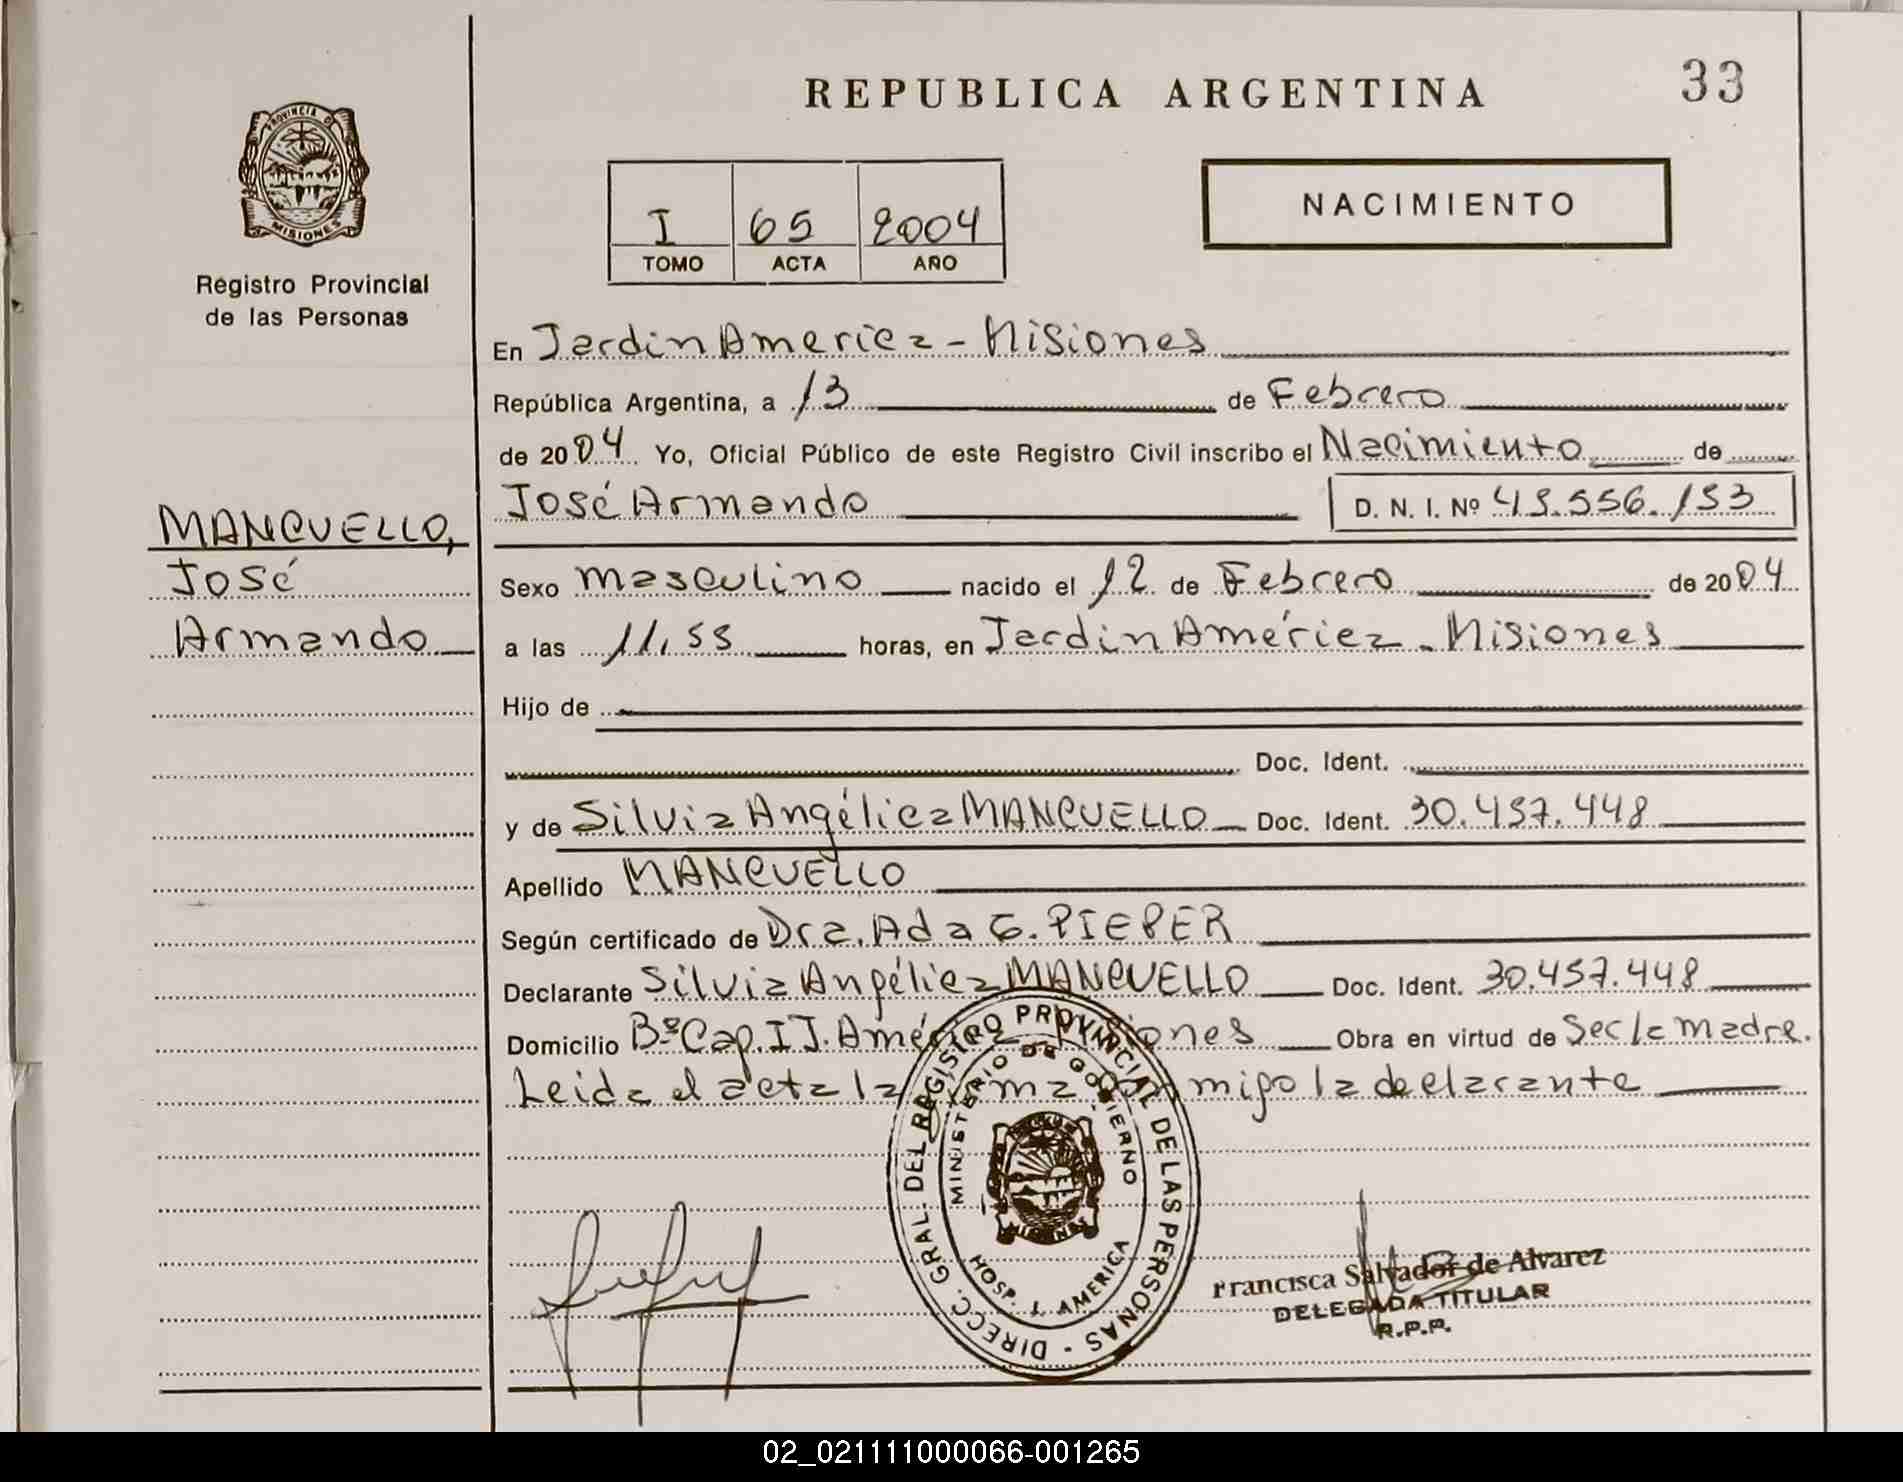 REPUBLICA ARGENTINA
33
PROVINCIA D
MISIONES
Registro Provincial
de las Personas
I 65 2004
TOMO ACTA AÑO
NACIMIENTO
En Jardin America - Misiones
República Argentina, a 13 de Febrero
de 2004 Yo, Oficial Público de este Registro Civil inscribo el Nacimiento de
José Armando D. N. I. Nº
MANCUELLO,
José
Armando
Sexo masculino nacido el 12 de Febrero de 2004
a las 11,55 horas, en Jardin América - Misiones
Hijo de
Doc. Ident.
y de Silvia Angélica MANCUELLO Doc. Ident. 30.457.448
Apellido MANCUELLO
Según certificado de Dra. Ada G. PIEPER
Declarante Silvia Angélica MANCUELLO Doc. Ident. 30.457.448
Domicilio Bº Cap. I J. América Misiones Obra en virtud de Ser la madre.
Leida el acta la firma con migo la declarante
DIRECC. GRAL. DEL REGISTRO PROVINCIAL DE LAS PERSONAS -
MINISTERIO DE GOBIERNO
HOSP. J. AMERICA
Francisca Salvador de Alvarez
DELEGADA TITULAR
R.P.P.
02_021111000066-001265